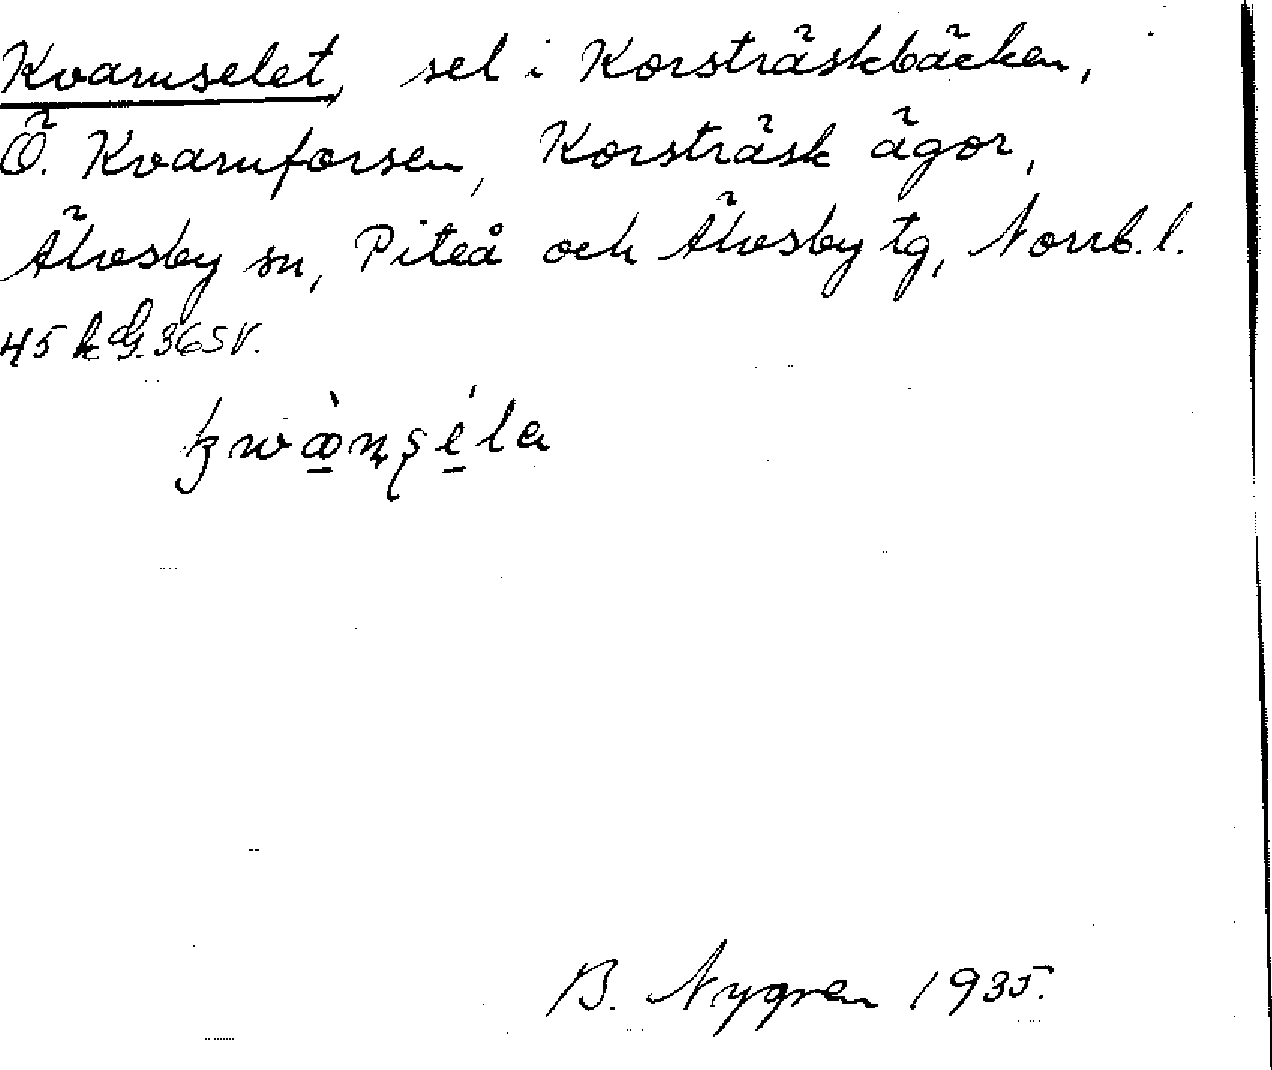 Kvarnselet, sel i Korsträskbäcken,
Ö. Kvarnforsen, Korsträsk ägor,
Älvsby sn, Piteå och Älvsby tg, Norrb. l.
45 k G. 365 V.
B. Nygren 1935.